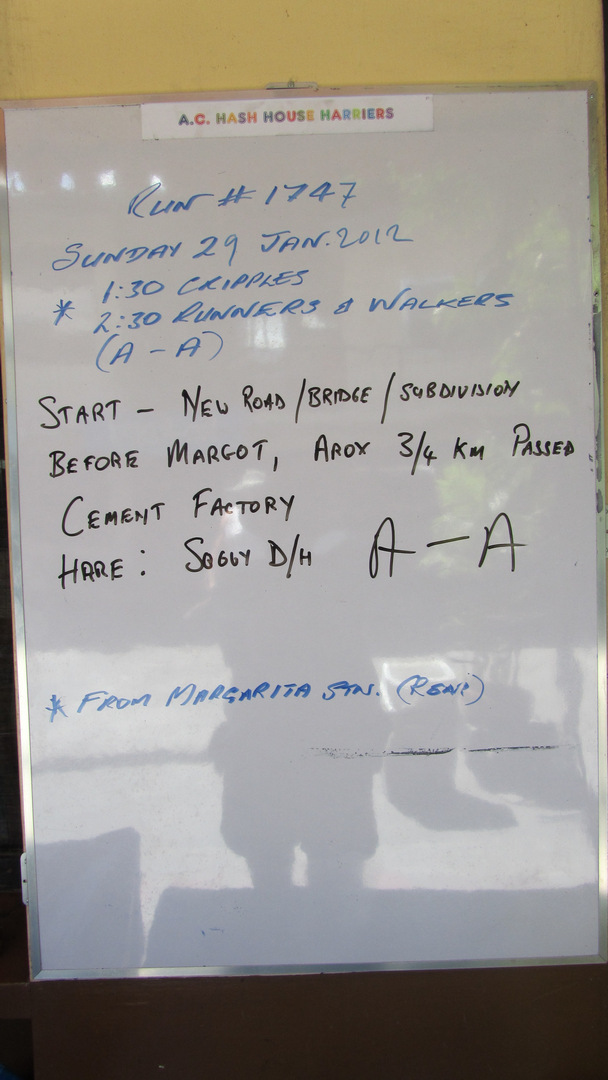 A.C. HASH HOUSE HARRIERS
RUN # 1747
SUNDAY 29 JAN. 2012
1:30 CRIPPLES
* 2:30 RUNNERS & WALKERS
(A - A)
START - NEW ROAD / BRIDGE / SUBDIVISION
BEFORE MARGOT, AROX 3/4 KM PASSED
CEMENT FACTORY
HARE: SOGGY D/H A - A
* FROM MARGARITA STN. (RENE)